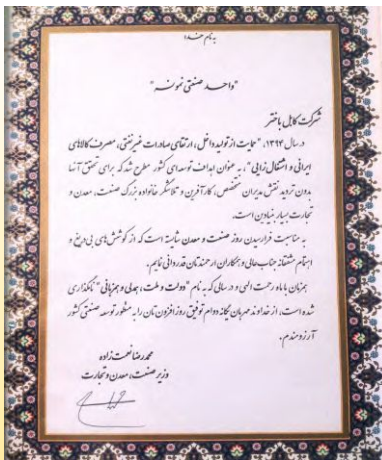 بنام خدا
"واحد صنعتی نمونه"
شرکت کابل باختر
در سال ۱۳۹۳، "حمایت از تولید داخل، ارتقای صادرات غیرنفتی، مصرف کالاهای
ایرانی و اشتغال زایی"، به عنوان اهداف توسعه ای کشور مطرح شد که برای تحقق آنها
بدون تردید نقش مدیران متخصص، کارآفرین و تلاشگر خانواده بزرگ صنعت، معدن و
تجارت بسیار بنیادین است.
به مناسبت فرارسیدن روز صنعت و معدن شایسته است که از کوشش های بی دریغ و
اهتمام مشفقانه جنابعالی و همکاران ارجمندتان قدردانی نمایم.
همزمان با ماه رحمت الهی و در سالی که به نام "دولت و ملت، همدلی و همزبانی" نامگذاری
شده است، از خداوند مهربان یگانه دوام توفیق روزافزون تان را به منظور توسعه صنعتی کشور
آرزومندم.
محمدرضا نعمت زاده
وزیر صنعت، معدن و تجارت